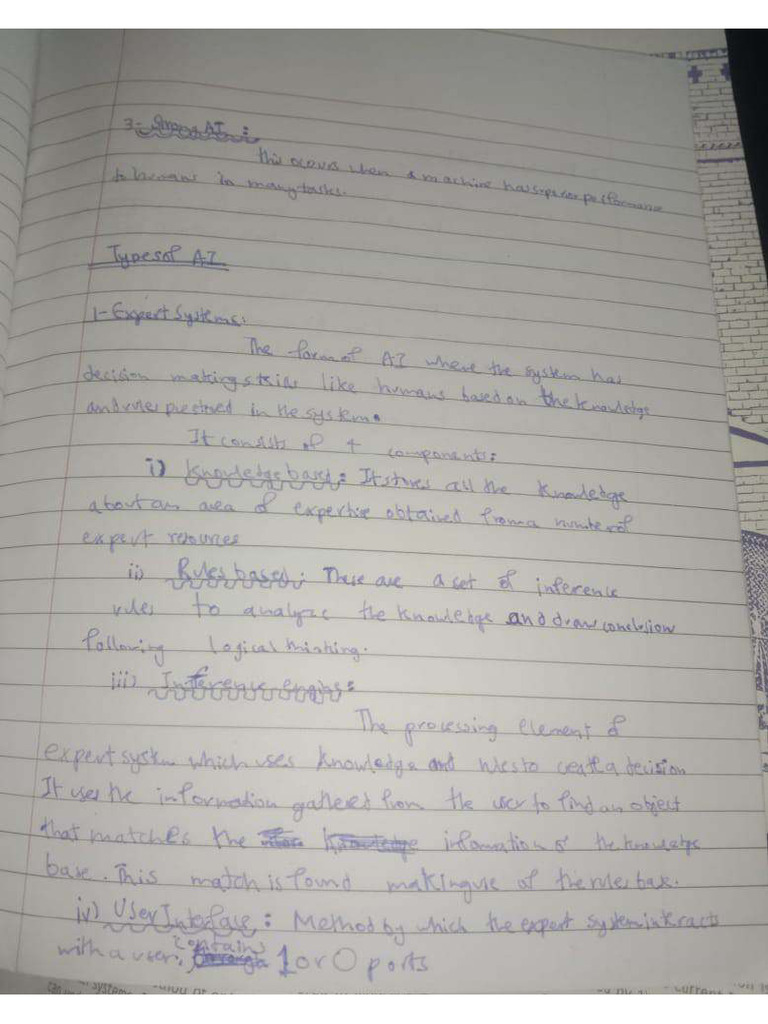 3- Strong AI :
This occurs when a machine has superior performance
to humans in many tasks.
Types of AI
1- Expert Systems:
The form of AI where the system has
decision making skills like humans based on the knowledge
and rules pestored in the system.
It consists of 4 components:
i) Knowledge base: It stores all the knowledge
about an area of expertise obtained from a number of
expert resources
ii) Rules based: These are a set of inference
rules to analyze the knowledge and draw conclusion
following logical thinking.
iii) Inference engine:
The processing element of
expert system which uses knowledge and rules to a decision
It uses the information gathered from the user to find an object
that matches the information of the knowledge
base. This match is found making use of the rules base.
iv) User Interface: Method by which the expert system interacts
with a user, contains 1 or 0 ports